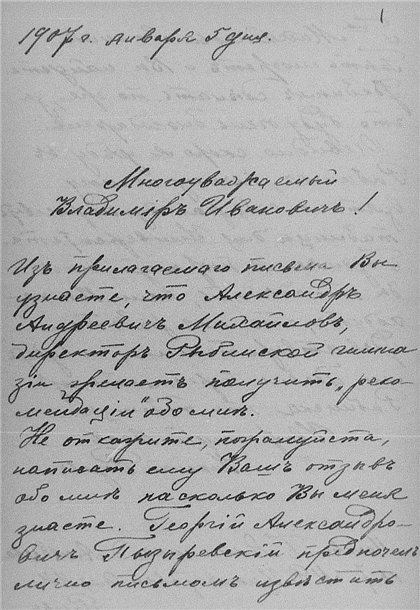 1
1907 г. января 5 дня.
Многоуважаемый
Владиміръ Ивановичъ!
Изъ прилагаемаго письма Вы
узнаете, что Александръ
Андреевичъ Михайловъ,
директоръ Рыбинской гимна
зіи желаетъ получить „реко-
мендаціи" обо мнѣ.
Не откажите, пожалуйста,
написать ему Вашъ отзывъ
обо мнѣ насколько Вы меня
знаете. Георгій Александро-
вичъ Пызыревскій предпочелъ
лично письмомъ извѣстить